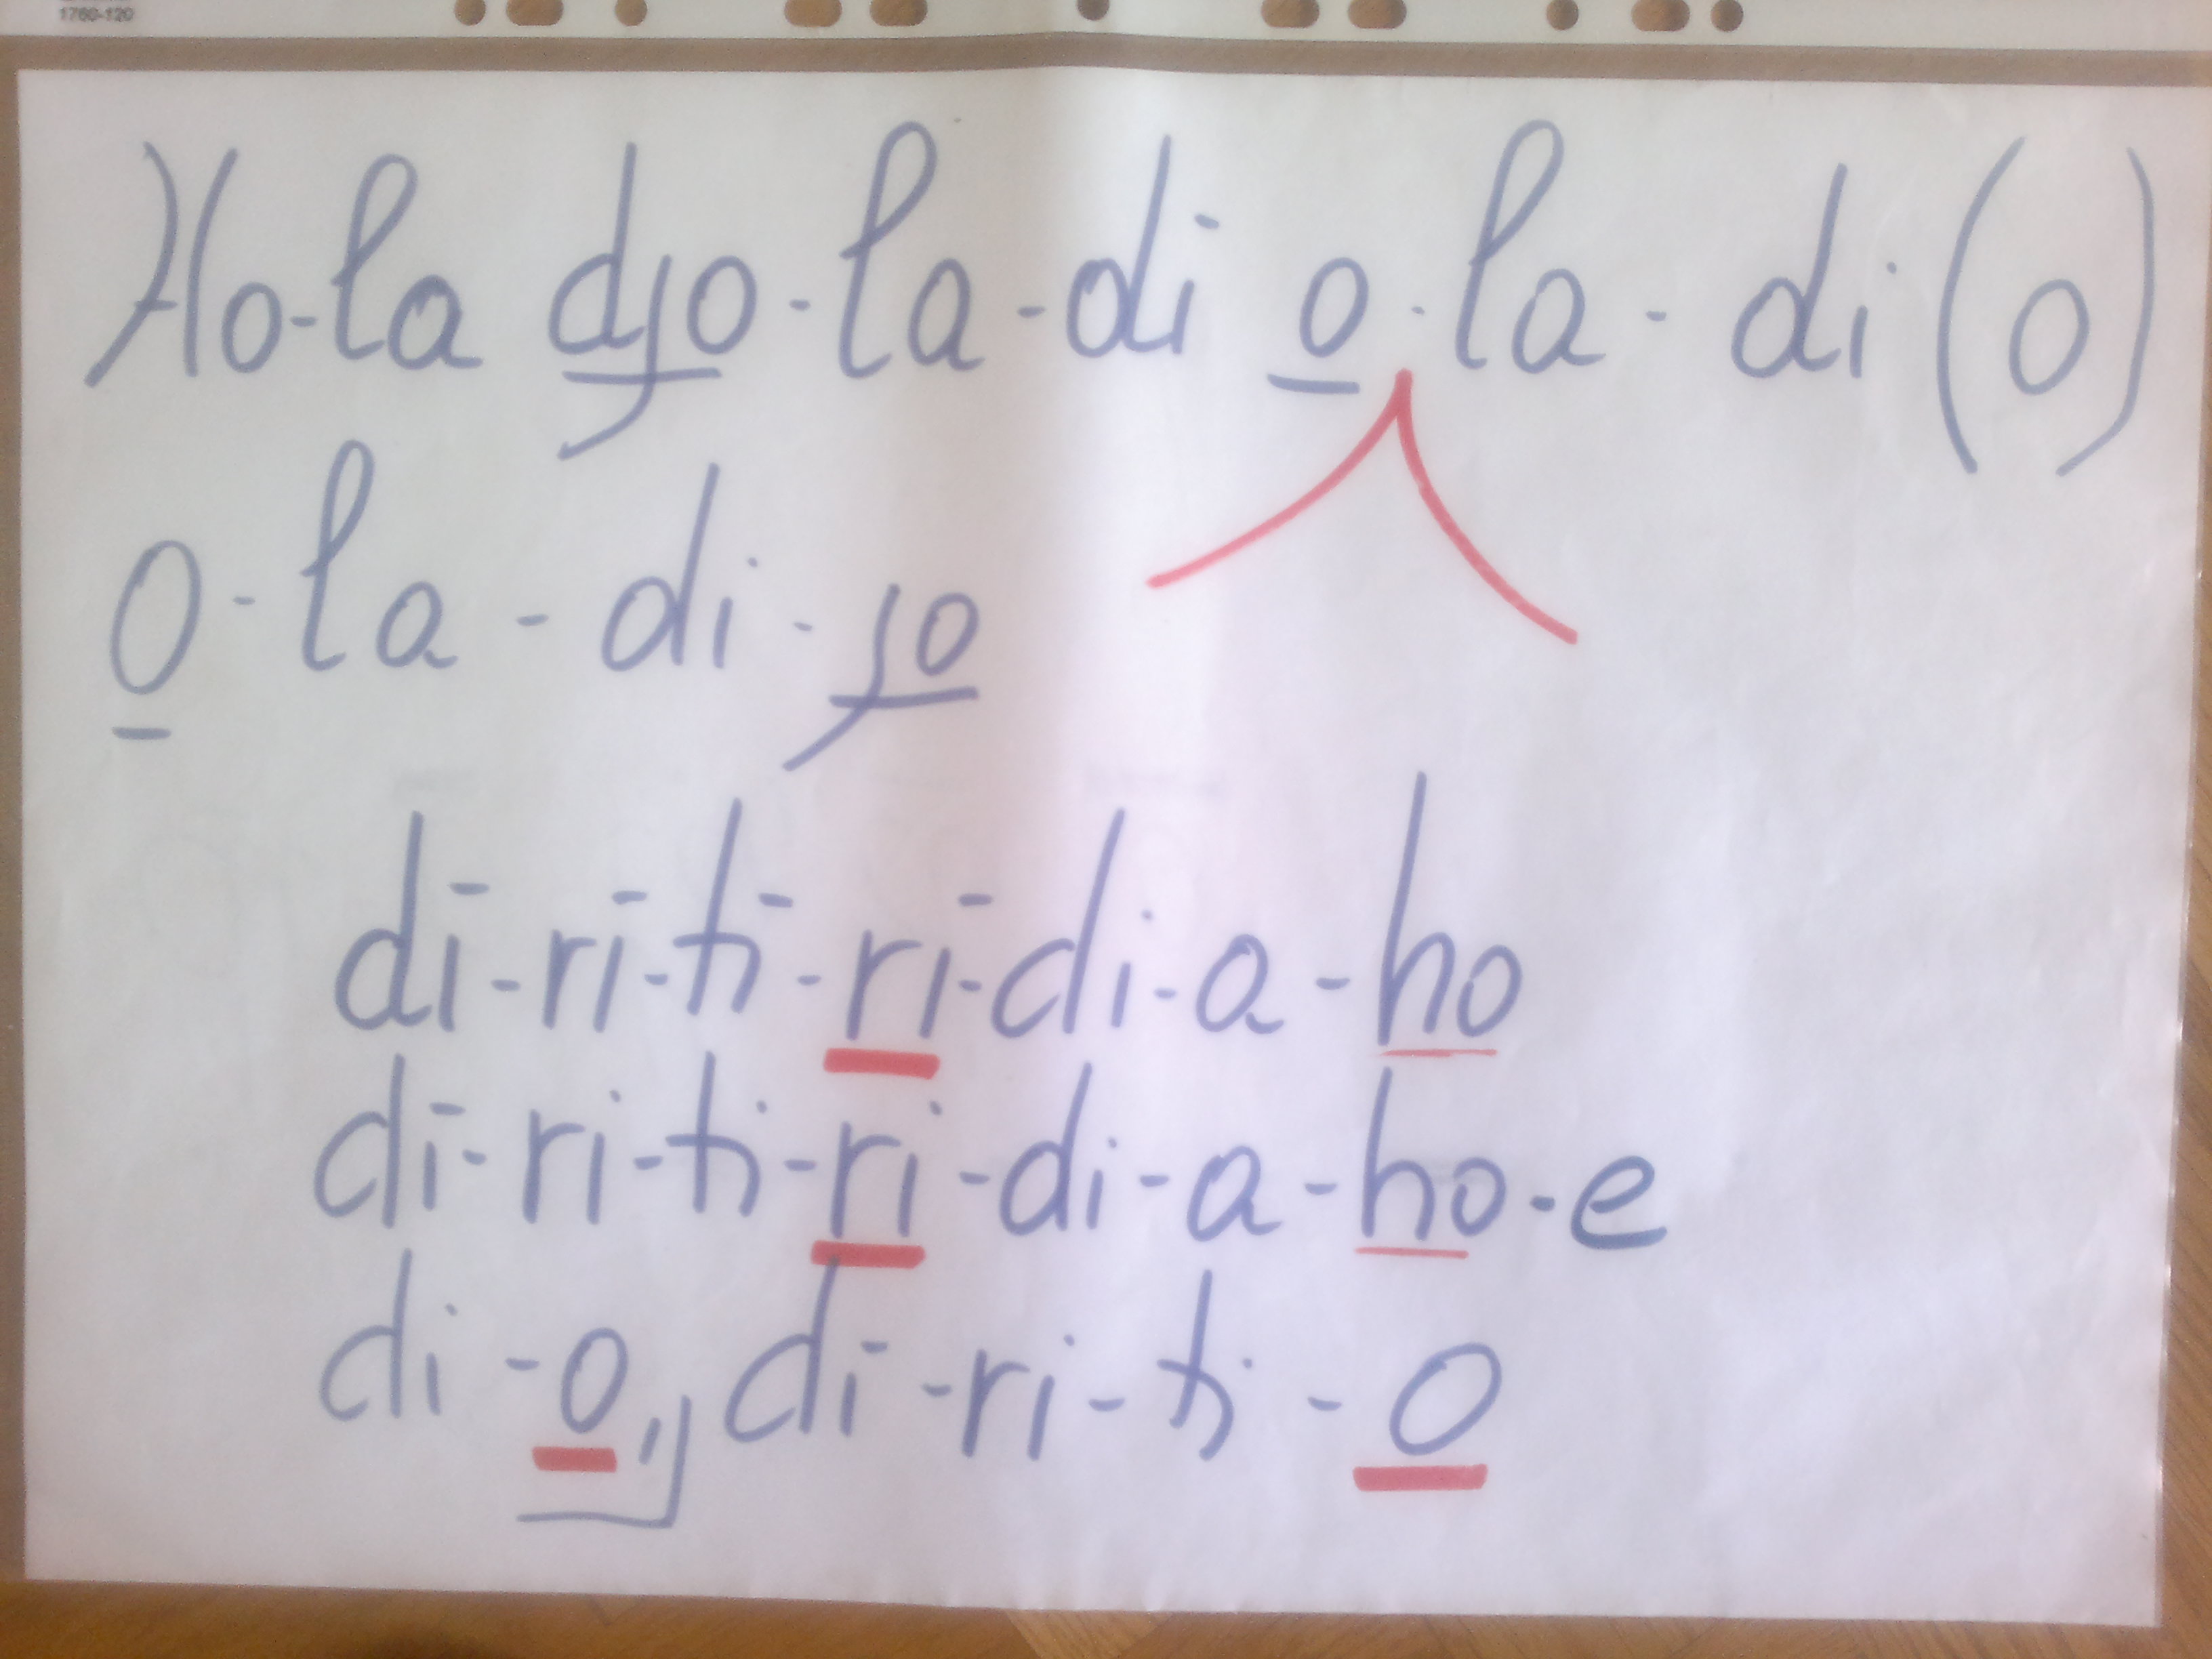 1760-120
Ho-la djo-la-di o-la-di (o)
O-la-di-jo
di-ri-ti-ri-di-a-ho
di-ri-ti-ri-di-a-ho-e
di-o,, di-ri-ti-o